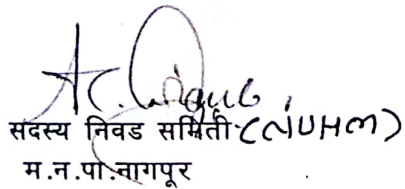 सदस्य निवड समिती (NUHM)
म.न.पा.नागपूर